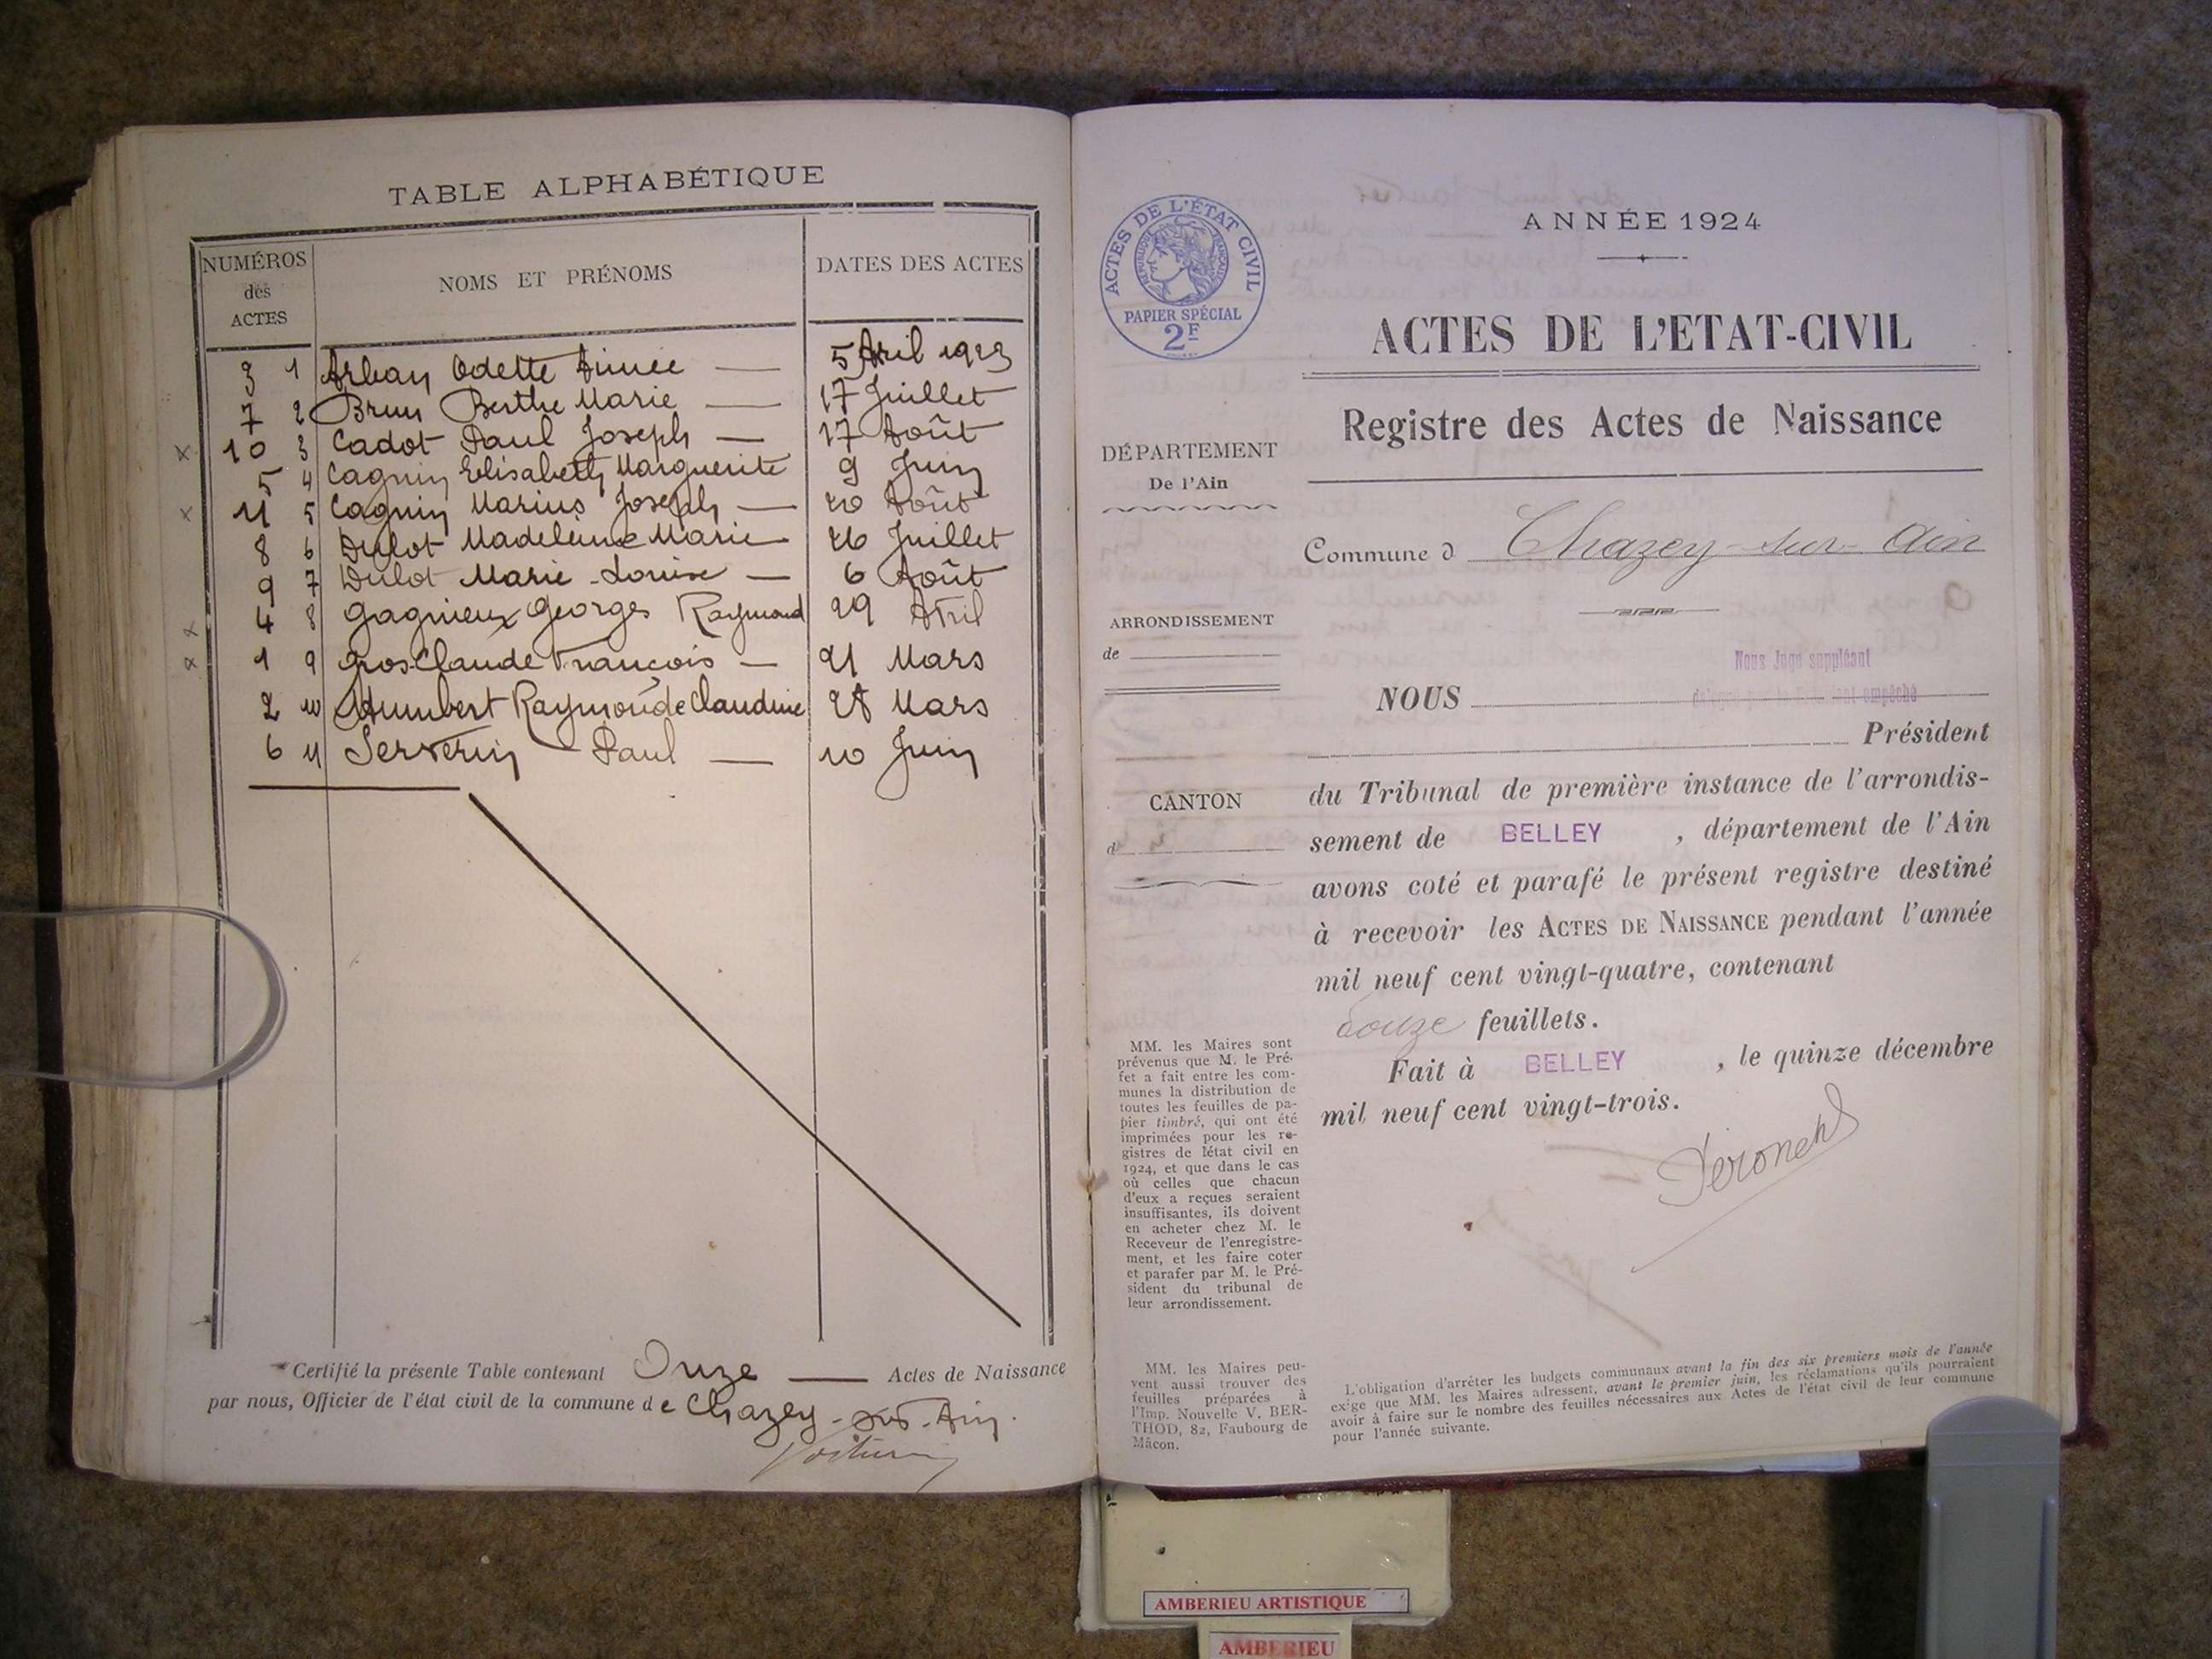 TABLE ALPHABÉTIQUE
NUMÉROS des ACTES
NOMS ET PRÉNOMS
DATES DES ACTES
3 1 Arban Odette Aimée — 5 Avril 1923
7 2 Brun Berthe Marie — 17 Juillet
x 10 3 Cadot Paul Joseph — 17 Août
5 4 Cagnin Elisabeth Marguerite 9 Juin
x 11 5 Cagnin Marius Joseph — 20 Août
8 6 Dulot Madeleine Marie 26 Juillet
9 7 Dulot Marie-Louise — 6 Août
x 4 8 Gagnieux Georges Raymond 29 Avril
x 1 9 Grosclaude François — 21 Mars
2 10 Humbert Raymonde Claudine 28 Mars
6 11 Serverin Paul — 10 Juin
Certifié la présente Table contenant Onze — Actes de Naissance
par nous, Officier de l'état civil de la commune de Chazey-sur-Ain.
ACTES DE L'ÉTAT CIVIL
RÉPUBLIQUE FRANÇAISE
PAPIER SPÉCIAL
2F
ANNÉE 1924
ACTES DE L'ETAT-CIVIL
Registre des Actes de Naissance
DÉPARTEMENT
De l'Ain
Commune d Chazey-sur-Ain
ARRONDISSEMENT
de
Nous Juge suppléant
NOUS
empêché
Président
CANTON
d
du Tribunal de première instance de l'arrondis-
sement de BELLEY , département de l'Ain
avons coté et parafé le présent registre destiné
à recevoir les ACTES DE NAISSANCE pendant l'année
mil neuf cent vingt-quatre, contenant
douze feuillets.
Fait à BELLEY , le quinze décembre
mil neuf cent vingt-trois.
MM. les Maires sont
prévenus que M. le Pré-
fet a fait entre les com-
munes la distribution de
toutes les feuilles de pa-
pier timbré, qui ont été
imprimées pour les re-
gistres de l'état civil en
1924, et que dans le cas
où celles que chacun
d'eux a reçues seraient
insuffisantes, ils doivent
en acheter chez M. le
Receveur de l'enregistre-
ment, et les faire coter
et parafer par M. le Pré-
sident du tribunal de
leur arrondissement.
MM. les Maires peu-
vent aussi trouver des
feuilles préparées à
l'Imp. Nouvelle V. BER-
THOD, 82, Faubourg de
Mâcon.
L'obligation d'arrêter les budgets communaux avant la fin des six premiers mois de l'année
exige que MM. les Maires adressent, avant le premier juin, les réclamations qu'ils pourraient
avoir à faire sur le nombre des feuilles nécessaires aux Actes de l'état civil de leur commune
pour l'année suivante.
AMBERIEU ARTISTIQUE
AMBERIEU